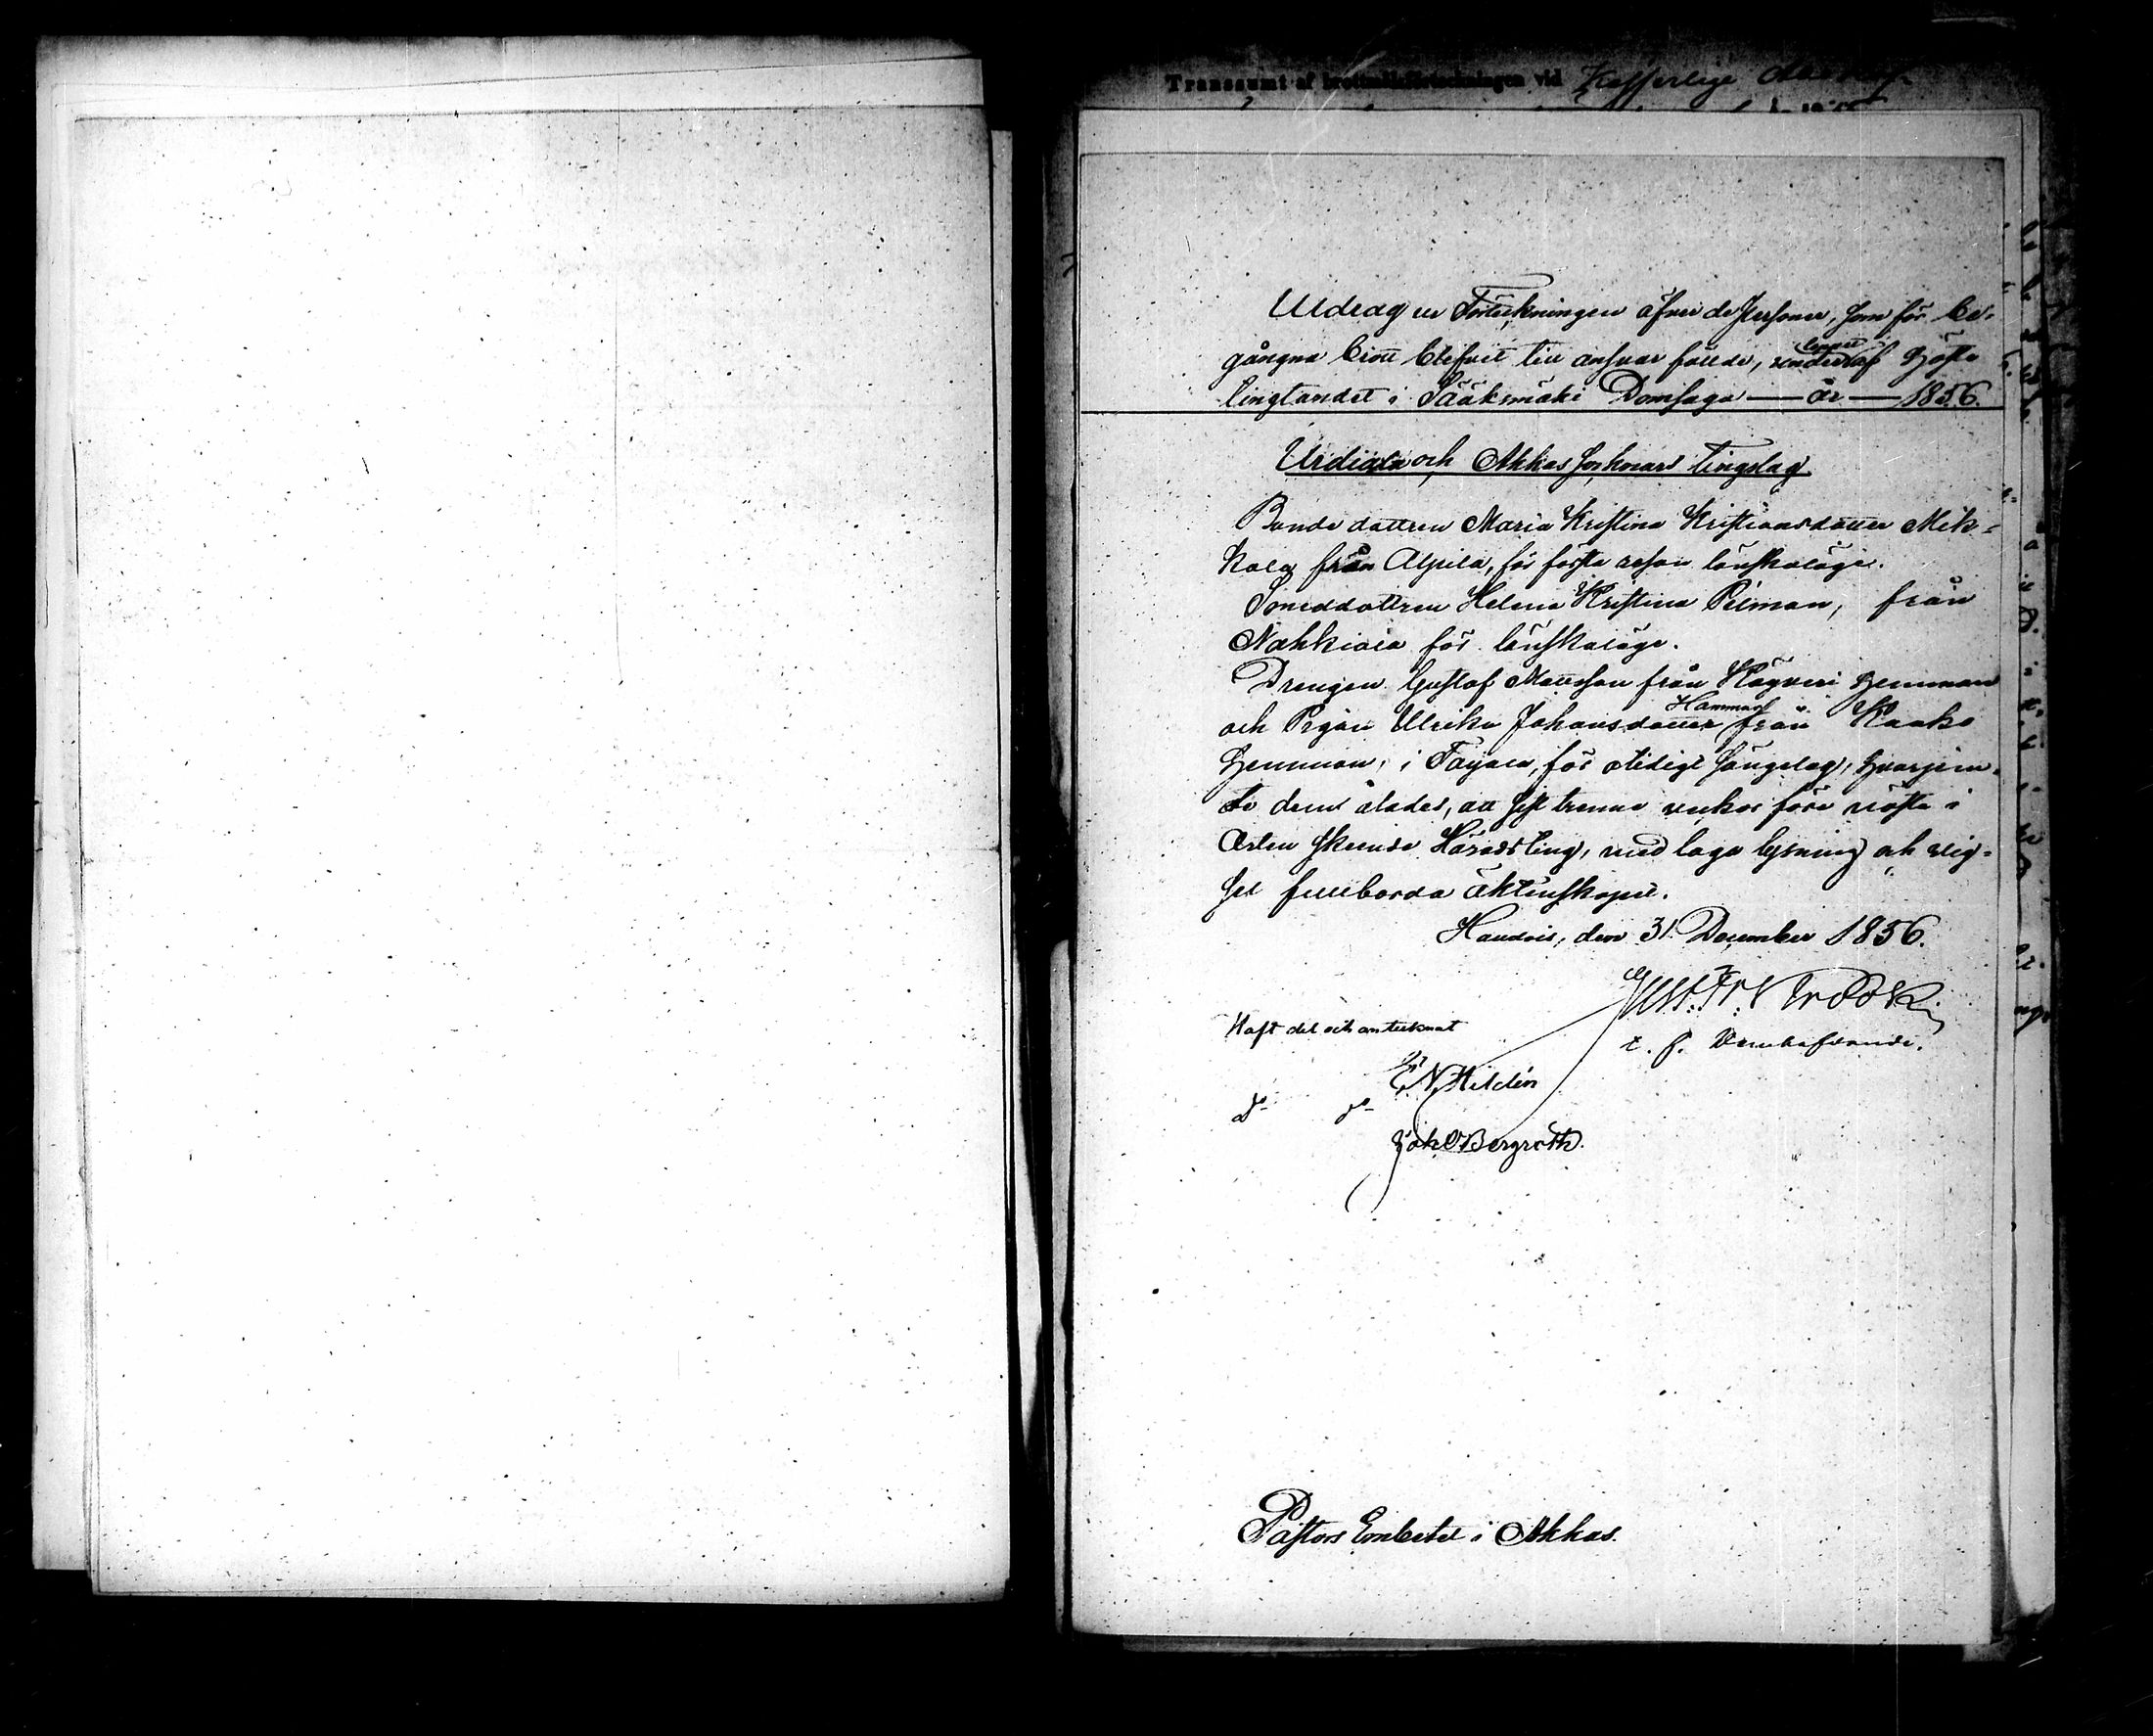 Transsumt af brottmålsförteckningen vid Kejserlige Åbo
Utdrag ur Förteckningen öfver de Personer, som för be-
gångna brott blifvit till ansvar fällde, under loppet af Höste
tingtandet i Sääksmäki Domsaga — år — 1856.
Urdiala och Akkas socknars tingslag.
Bonde dottren Maria Kristina Kristiansdotter Mik-
kola från Alpila, för första resan lönskaläge.
Smeddottren Helena Kristina Pilman, från
Nahkiala för lönskaläge.
Drengen Gustaf Mattsson från Köyveri hemman
och Pigan Ulrika Johansdotter Hammar från Kaako
hemman, i Taipala, för otidigt sängelag, hvarjem-
te dem ålades, att sist trenne veckor före nästa i
Orten skeende Häradsting, med laga lysning och vig-
sel fullborda äktenskapet.
Haudois, den 31 December 1856.
t. f. Domhafvande.
Haft del och antecknat
E N Hildén
d:o d:o
Joh O Bergroth.
Pastors Embetet i Akkas.